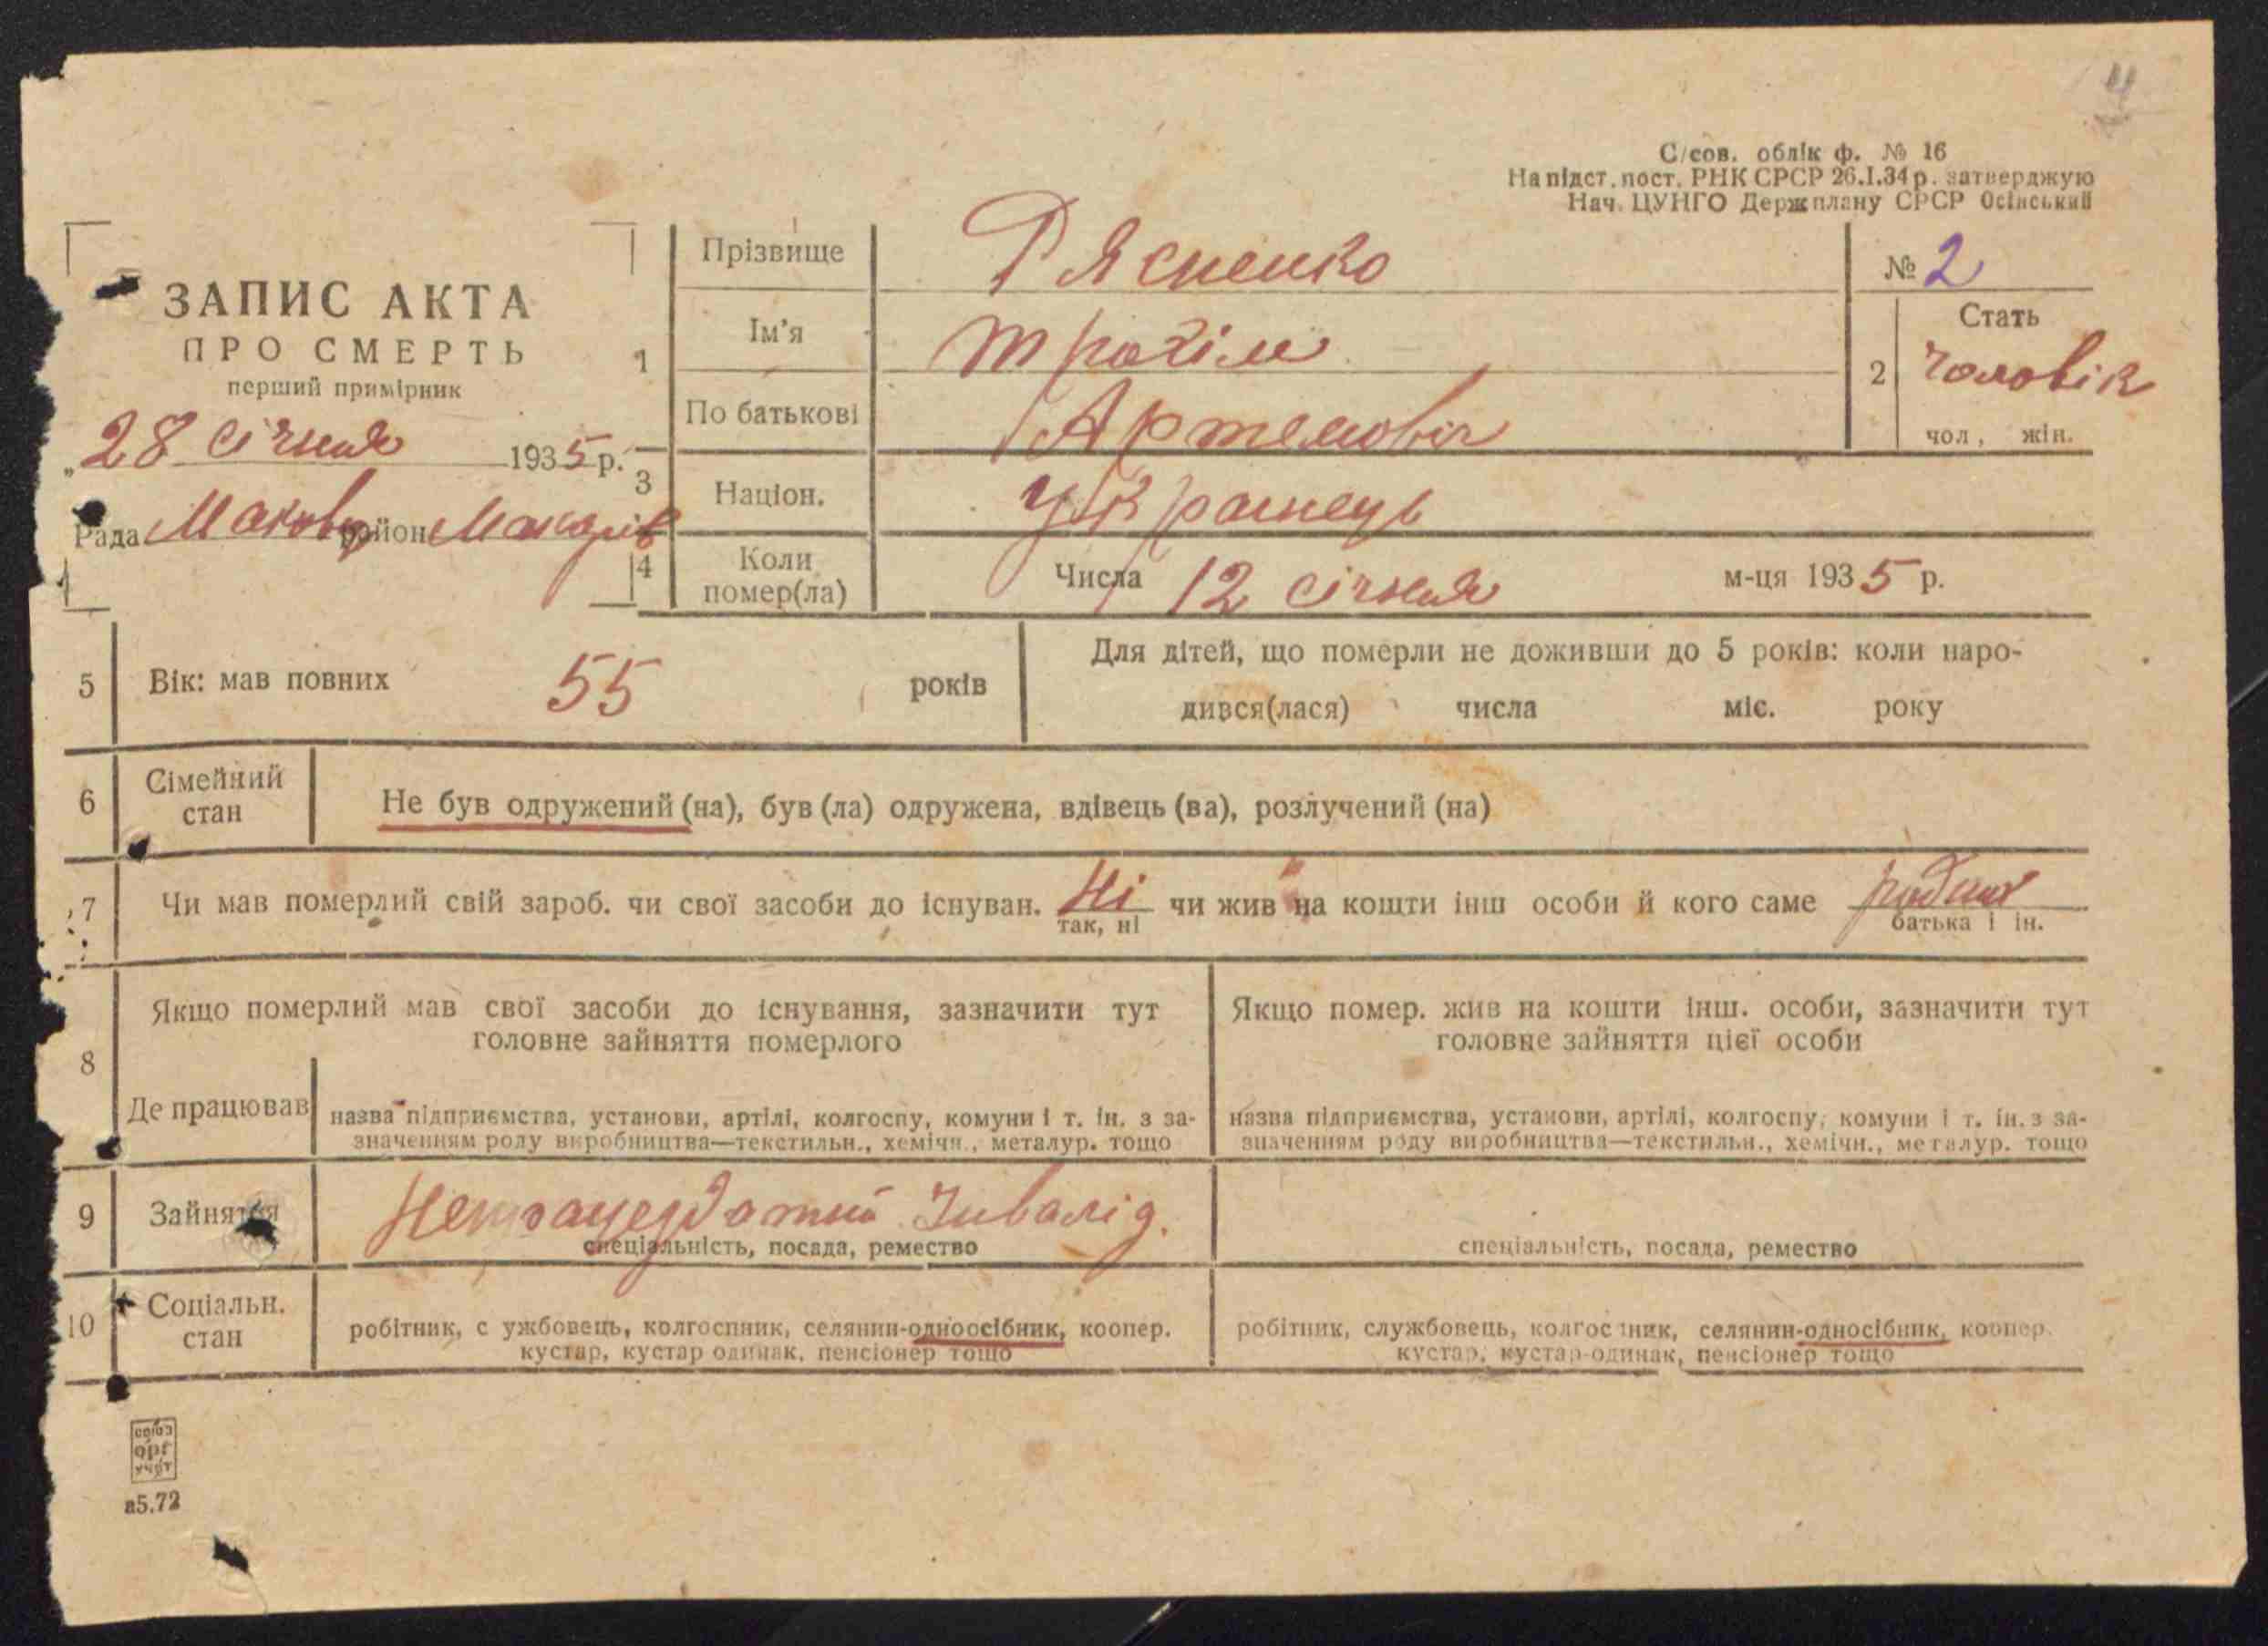 4
С/сов. облік ф. № 16
На підст. пост. РНК СРСР 26.I.34 р. затверджую
Нач. ЦУНГО Держплану СРСР Осінський
ЗАПИС АКТА
ПРО СМЕРТЬ
перший примірник
„28 січня 1935 р.
Рада Макові район Макарів
1 Прізвище Рясненко
Ім'я Трохім
По батькові Артемович
№ 2
2 Стать
чоловік
чол., жін.
3 Націон. Українець
4 Коли помер(ла) Числа 12 січня м-ця 1935 р.
5 Вік: мав повних 55 років
Для дітей, що померли не доживши до 5 років: коли наро-
дився(лася) числа міс. року
6 Сімейний стан Не був одружений (на), був (ла) одружена, вдівець (ва), розлучений (на)
7 Чи мав померлий свій зароб. чи свої засоби до існуван. Ні чи жив на кошти інш особи й кого саме
так, ні батька і ін.
8 Якщо померлий мав свої засоби до існування, зазначити тут
головне зайняття померлого
Якщо помер. жив на кошти інш. особи, зазначити тут
головне зайняття цієї особи
Де працював назва підприємства, установи, артілі, колгоспу, комуни і т. ін. з за-
значенням роду виробництва—текстильн., хемічн., металур. тощо
назва підприємства, установи, артілі, колгоспу, комуни і т. ін. з за-
значенням роду виробництва—текстильн., хемічн., металур. тощо
9 Зайняття Непрацездатний Інвалід.
спеціальність, посада, ремество
спеціальність, посада, ремество
10 Соціальн. стан робітник, с ужбовець, колгоспник, селянин-одноосібник, коопер.
кустар, кустар одинак, пенсіонер тощо
робітник, службовець, колгоспник, селянин-односібник, коопер.
кустар, кустар-одинак, пенсіонер тощо
союз
орг
учет
а5.72